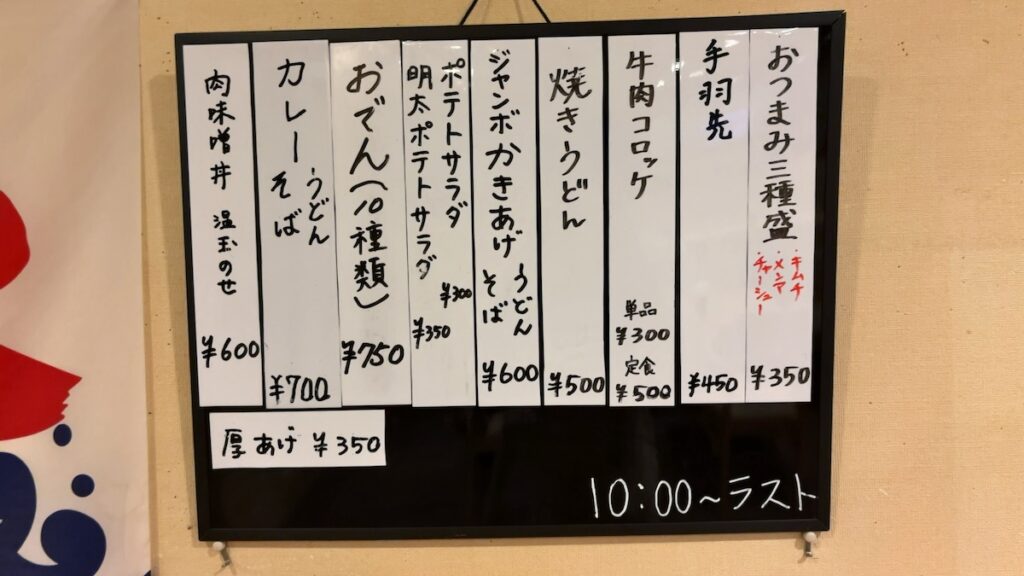 おつまみ三種盛
・キムチ
・メンマ
・チャーシュー
¥350
手羽先
¥450
牛肉コロッケ
単品
¥300
定食
¥500
焼きうどん
¥500
ジャンボかきあげ
うどん
そば
¥600
ポテトサラダ
¥300
明太ポテトサラダ
¥350
おでん(10種類)
¥750
カレー
うどん
そば
¥700
肉味噌丼 温玉のせ
¥600
厚あげ ¥350
10:00~ラスト